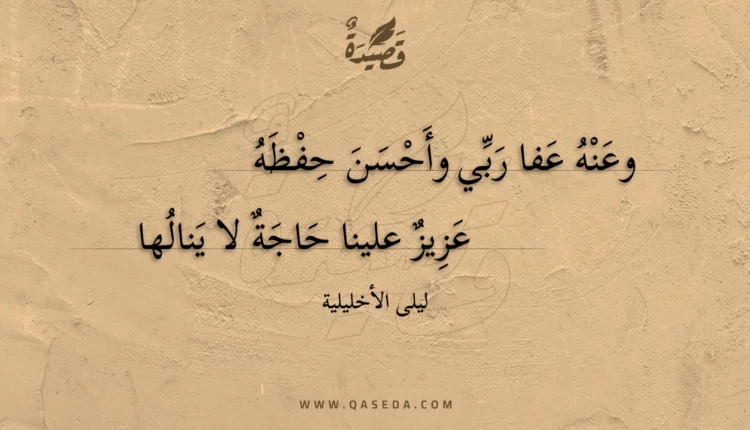 قَصِيدَةٌ
وعَنْهُ عَفا رَبِّي وأَحْسَنَ حِفْظَهُ
عَزِيزٌ علينا حَاجَةٌ لا يَنالُها
ليلى الأخليلية
WWW.QASEDA.COM